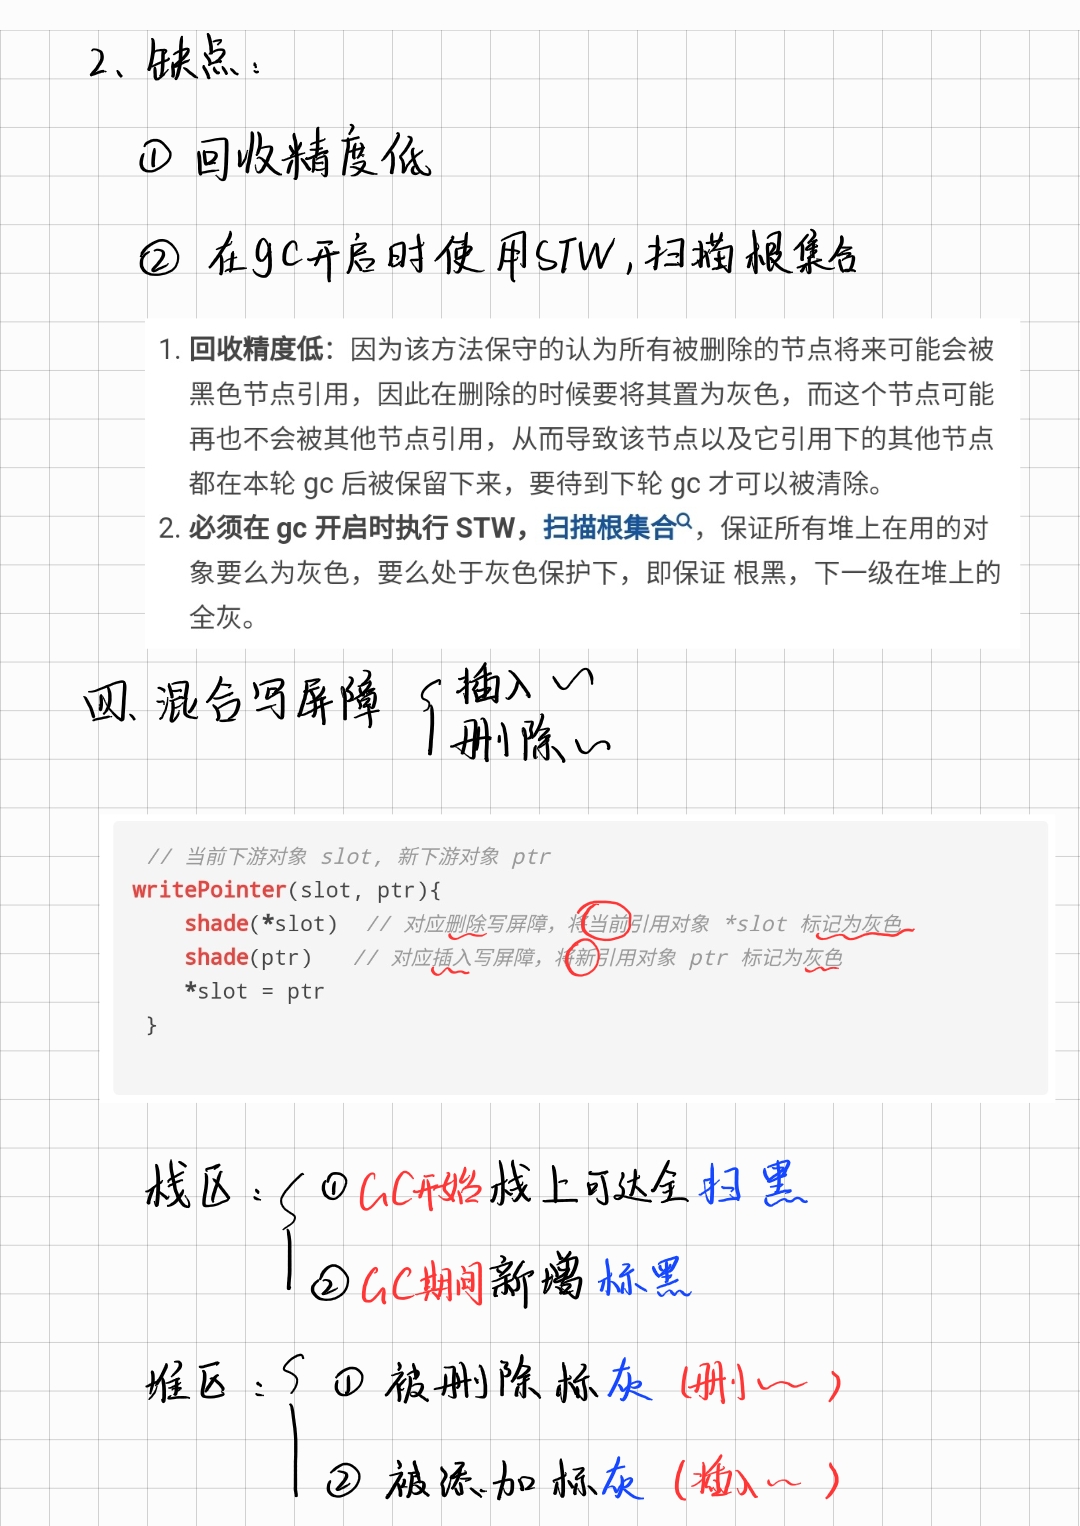 2、缺点：
① 回收精度低
② 在gc开启时使用STW,扫描根集合
1. 回收精度低：因为该方法保守的认为所有被删除的节点将来可能会被
黑色节点引用，因此在删除的时候要将其置为灰色，而这个节点可能
再也不会被其他节点引用，从而导致该节点以及它引用下的其他节点
都在本轮 gc 后被保留下来，要待到下轮 gc 才可以被清除。
2. 必须在 gc 开启时执行 STW，扫描根集合，保证所有堆上在用的对
象要么为灰色，要么处于灰色保护下，即保证 根黑，下一级在堆上的
全灰。
四、混合写屏障 { 插入~
删除~
// 当前下游对象 slot, 新下游对象 ptr
writePointer(slot, ptr){
shade(*slot) // 对应删除写屏障，将当前引用对象 *slot 标记为灰色
shade(ptr) // 对应插入写屏障，将新引用对象 ptr 标记为灰色
*slot = ptr
}
栈区：{ ① GC开始栈上可达全扫黑
② GC期间新增标黑
堆区：{ ① 被删除标灰 (删~)
② 被添加标灰 (插入~)